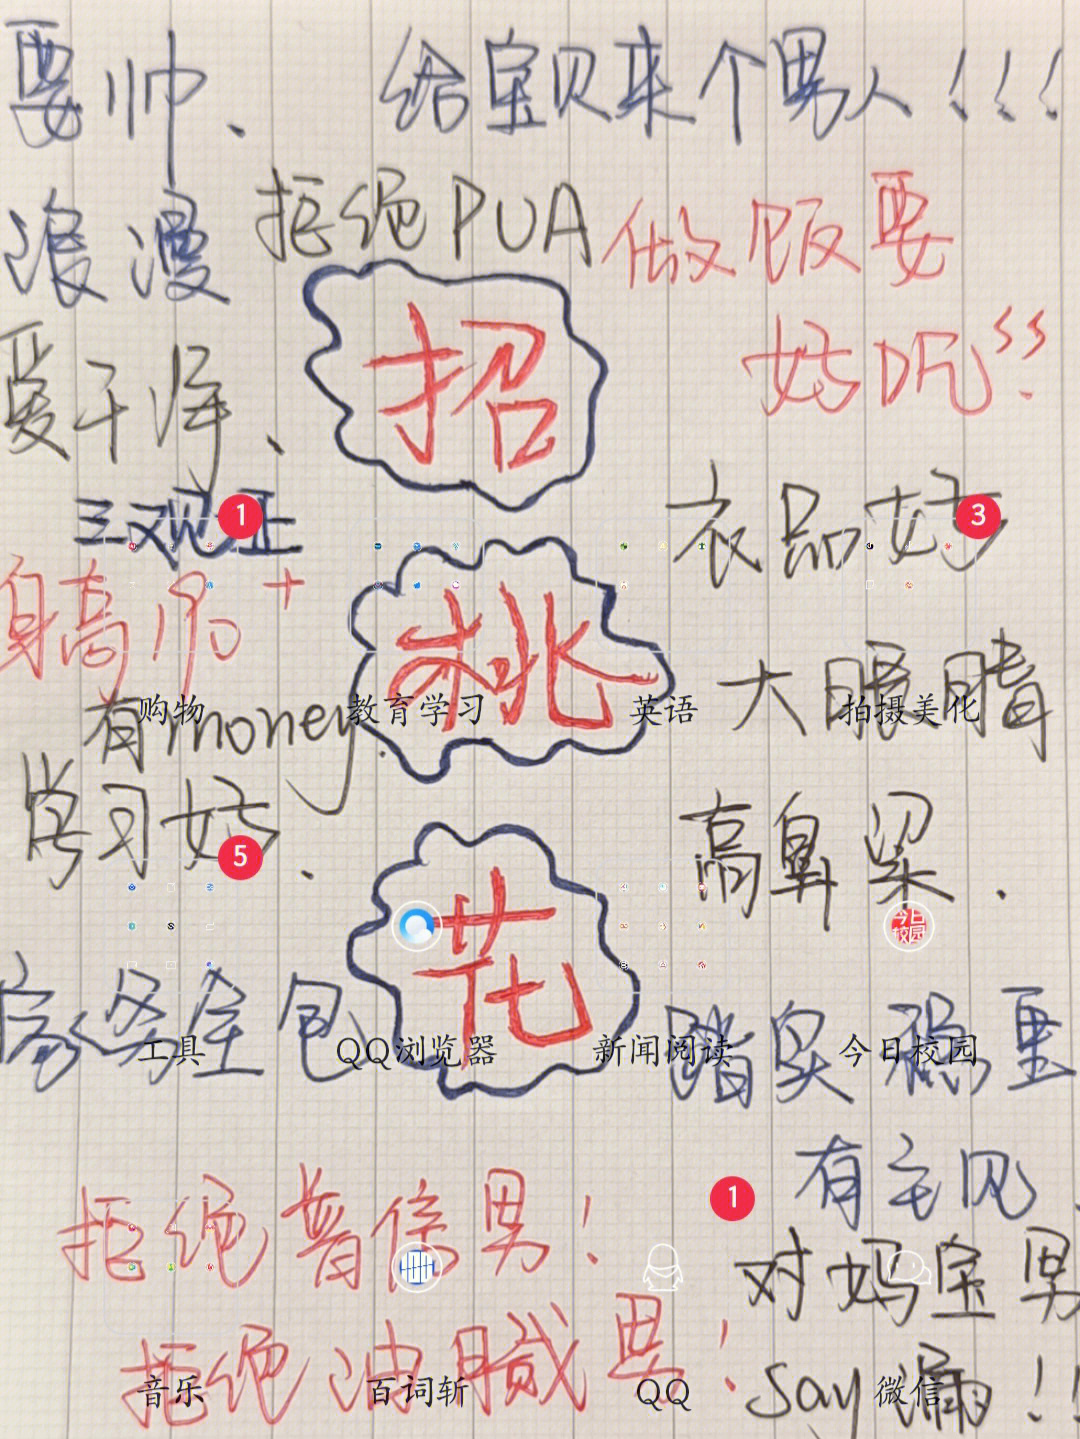 要帅、 给宝贝来个男人!!!
浪漫 拒绝PUA 做饭要
爱干净、 招 好吃!!
三观正 1 衣品好 3
身高190+ 桃 大眼睛
购物 教育学习 英语 拍摄美化
有money.
学习好、 高鼻梁.
5
花 今日校园
家务全包 踏实稳重
工具 QQ浏览器 新闻阅读 今日校园
有主见、
拒绝普信男! 1
对妈宝男
拒绝油腻男!
say 滴!!
音乐 百词斩 QQ 微信